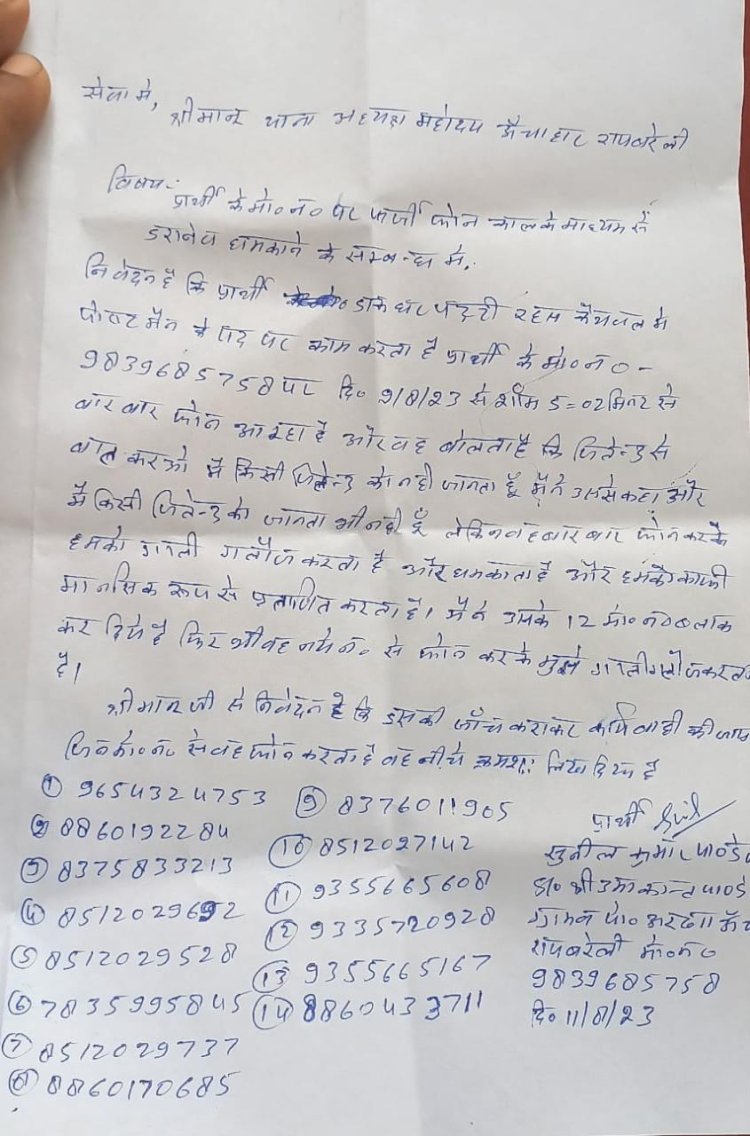 सेवा में,
श्रीमान थाना अध्यक्ष महोदय ऊँचाहार रायबरेली
विषय:-
प्रार्थी के मो० न० पर फर्जी फोन काल के माध्यम से
डराने व धमकाने के सम्बन्ध में,
निवेदन है कि प्रार्थी डाक घर पट्टी रहस कैथवल में
पोस्ट मैन के पद पर काम करता है प्रार्थी के मो० न० -
9839685758 पर दि० 9/8/23 से शाम 5=02 मिनट से
बार बार फोन आ रहा है और वह बोलता है कि जितेन्द्र से
बात कराओ मैं किसी जितेन्द्र को नही जानता हूँ मैंने उससे कहा और
मैं किसी जितेन्द्र को जानता भी नही हूँ लेकिन वह बार बार फोन करके
हमको गाली गलौज करता है और धमकाता है और हमको काफी
मानसिक रूप से प्रताणित करता है। मैंने उसके 12 मो० न० ब्लाक
कर दिये है फिर भी वह नये न० से फोन करके मुझे गाली गलौज करता
है।
श्रीमान जी से निवेदन है कि इसकी जाँच कराकर कार्यवाही की जाय
जिन मो० न० से वह फोन करता है वह नीचे क्रमशः लिख दिया है
① 9654324753 ⑨ 8376011905
② 8860192284 ⑩ 8512027142
③ 8375833213 ⑪ 9355665608
④ 8512029692 ⑫ 9335720928
⑤ 8512029528 ⑬ 9355665167
⑥ 7835995845 ⑭ 8860433711
⑦ 8512029737
⑧ 8860170685
प्रार्थी
सुनील कुमार पाण्डे
S/० श्री उमा कान्त पाण्डे
ग्राम व पो० अरखा
रायबरेली मो० न०
9839685758
दि० 11/8/23